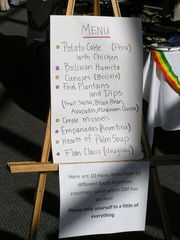 MENU
Potato Cake (Peru)
with Chicken
Bolivian Humita
Cuñapes (Bolivia)
Fried Plantains
and Dips
(Fruit Salsa, Black Bean,
Avocado, Mushroom Ceviche)
Creole Mussels
Empanadas (Argentina)
Hearts of Palm Soup
Flan Clasico (Uruguay)
Here are 10 menu items from 10
different South American
countries, some where DBD has
worked!
Please help yourself to a little of
everything.